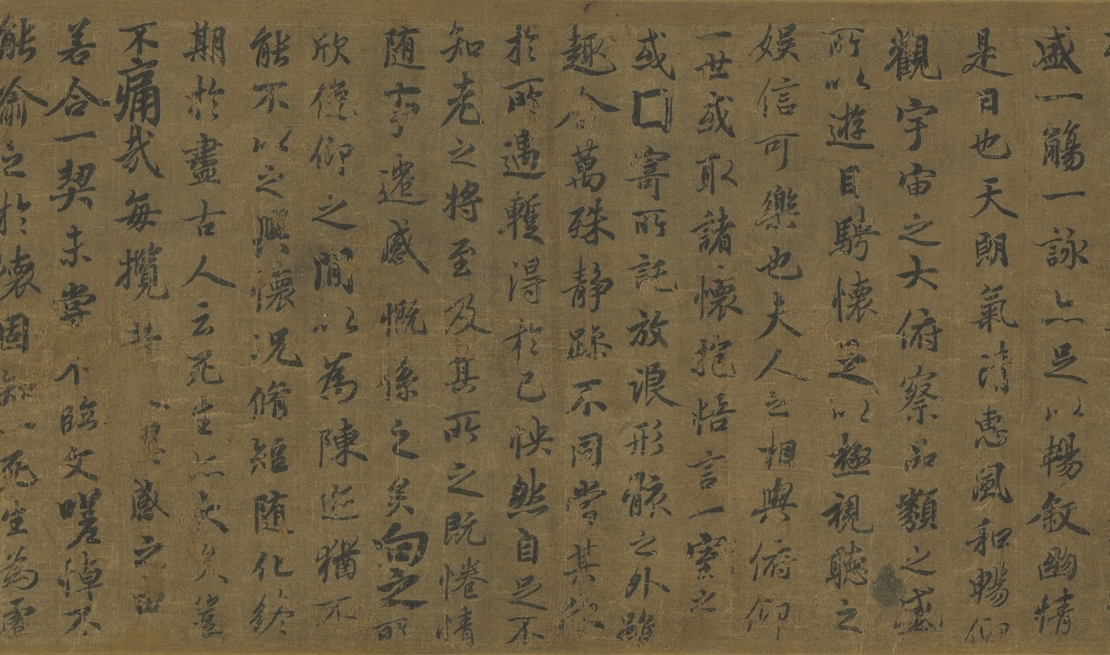 盛一觴一詠亦足以暢敘幽情
是日也天朗氣清惠風和暢仰
觀宇宙之大俯察品類之盛
所以遊目騁懷足以極視聽之
娛信可樂也夫人之相與俯仰
一世或取諸懷抱悟言一室之
或口寄所託放浪形骸之外雖
趣舍萬殊静躁不同當其欣
於所遇蹔得於己怏然自足不
知老之將至及其所之既惓情
随事遷感慨係之矣向之所
欣俛仰之閒以為陳迹猶不
能不以之興懷況脩短随化終
期於盡古人云死生亦大矣豈
不痛哉每攬昔感之由
若合一契未嘗不臨文嗟悼不
能喻之於懷固知一死生為虛